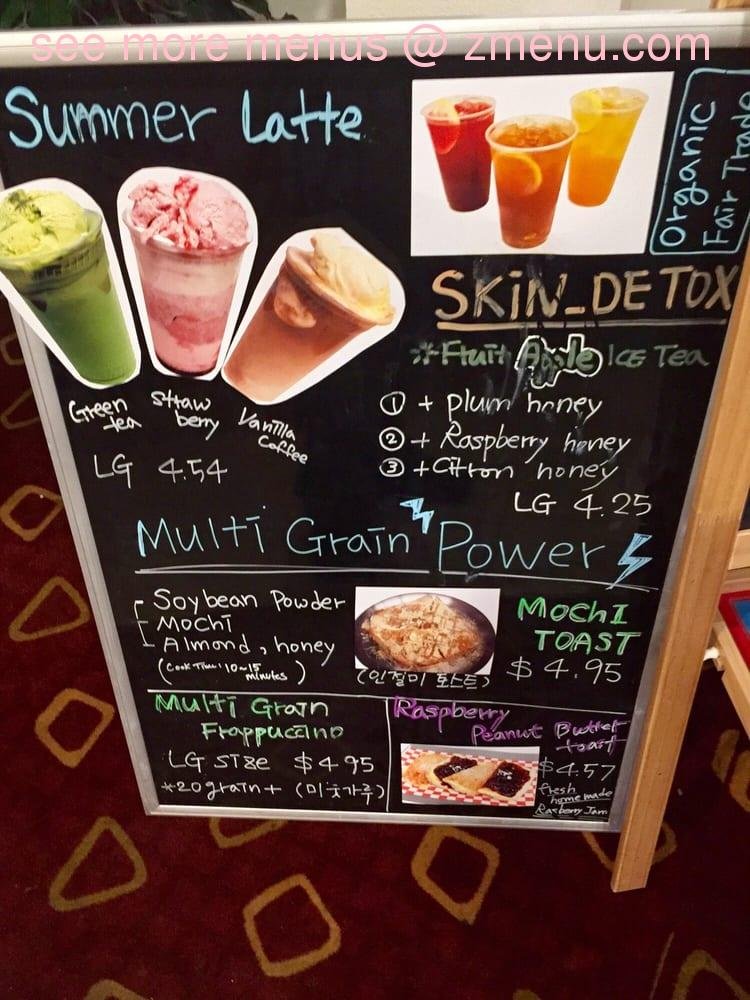 see more menus @ zmenu.com
Summer Latte
Organic
Fair Trade
Green tea
Straw berry
Vanilla Coffee
LG 4.54
SKIN_DETOX
Fruit Apple ICE TEA
① + plum honey
② + Raspberry honey
③ + Citron honey
LG 4.25
Multi Grain Power
Soybean Powder
Mochi
Almond, honey
(Cook Time: 10~15 minutes)
MOCHI
TOAST
$4.95
(인절미 토스트)
Multi Grain
Frappuccino
LG SIZE $4.95
*20 grain + (미숫가루)
Raspberry
Peanut Butter
toast
$4.57
fresh
home made
Rasberry Jam